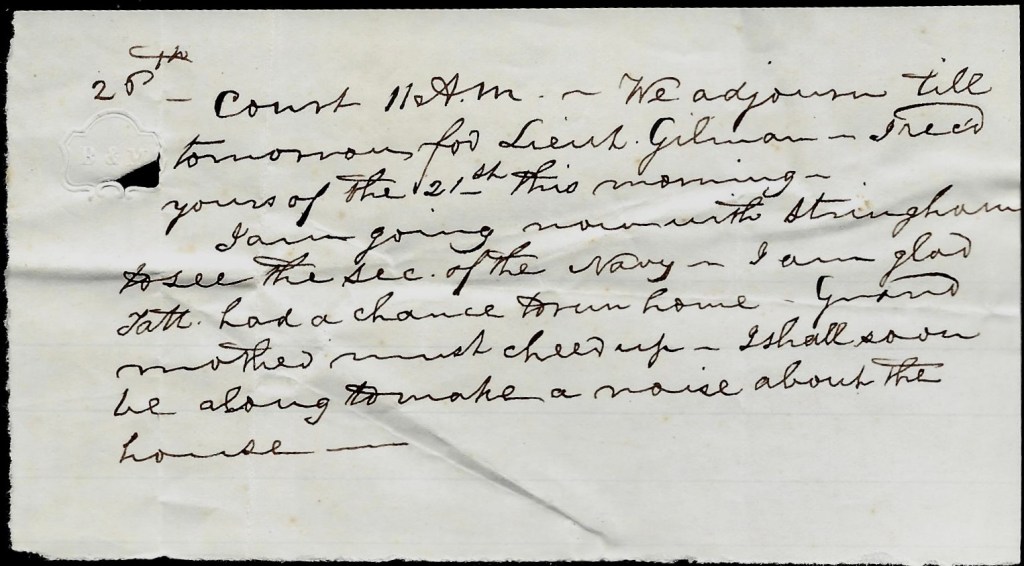 26th — Court 11 A.M. — We adjourn till
tomorrow for Lieut. Gilman — I rec'd
yours of the 21st this morning —
I am going now with Stringham
to see the Sec. of the Navy — I am glad
Tatt. had a chance to run home — Grand
mother must cheer up — I shall soon
be along to make a noise about the
house —